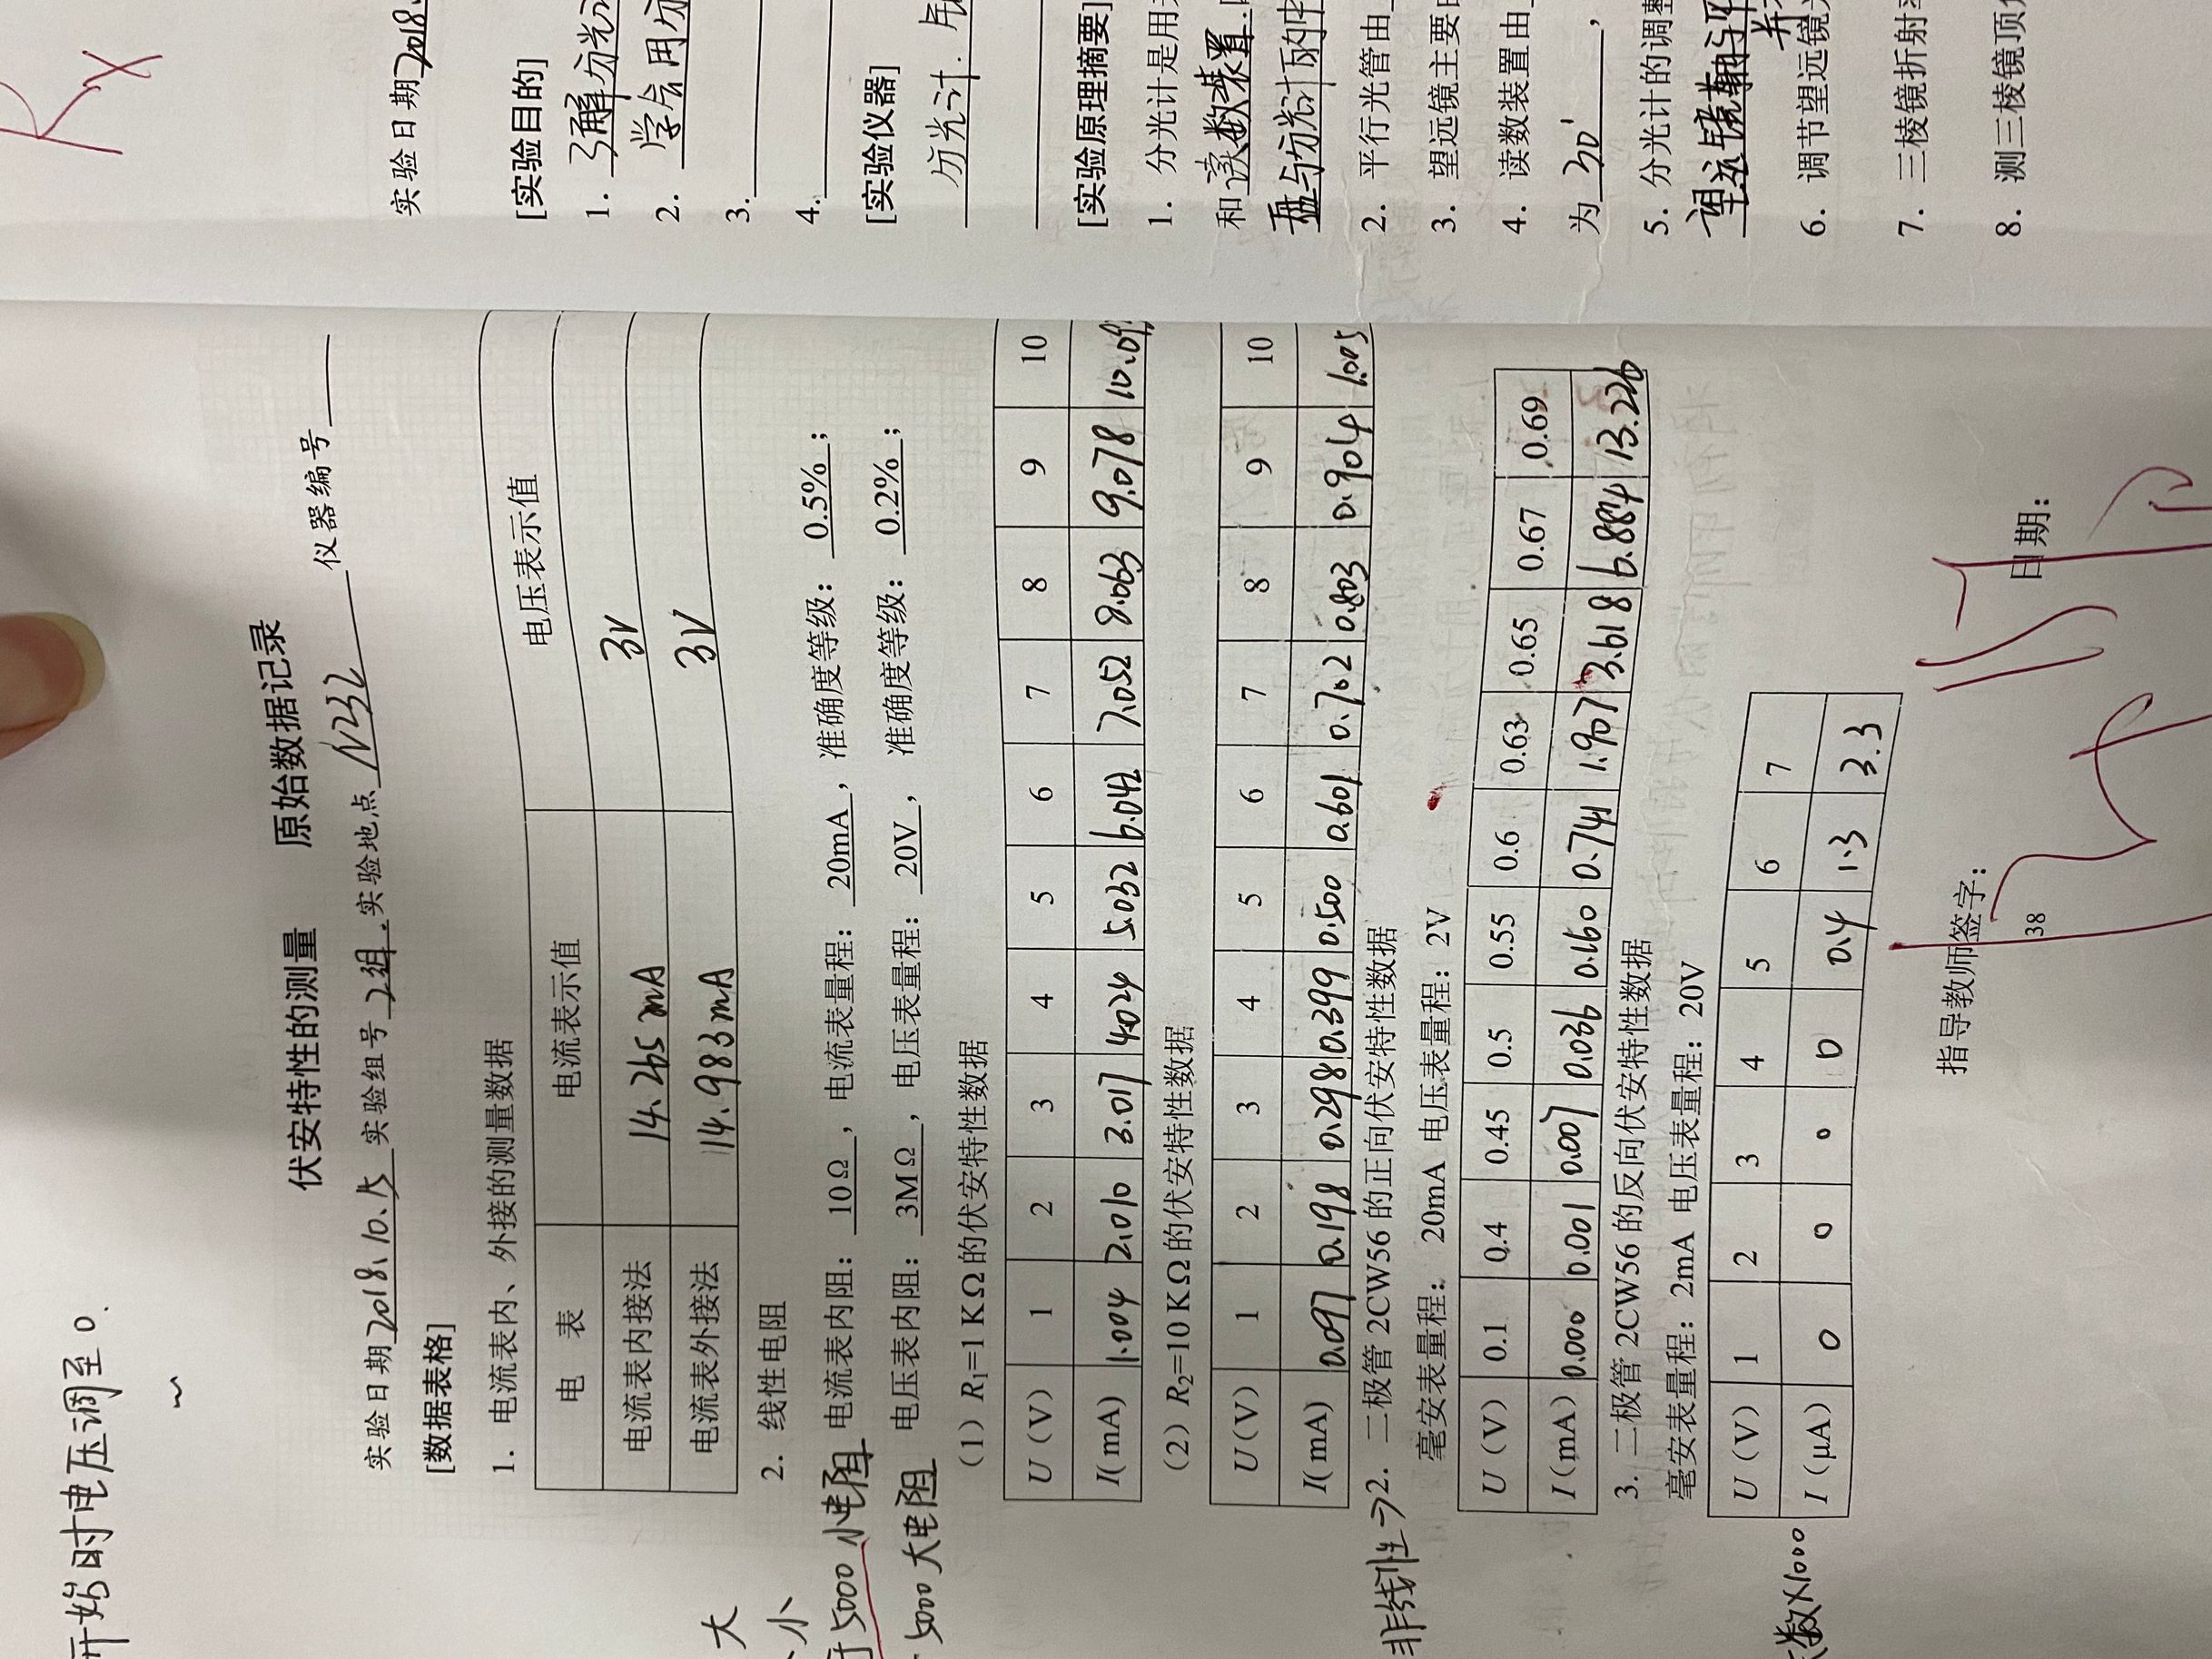 开始时电压调至0.
伏安特性的测量 原始数据记录
实验日期2018.10.15 实验组号2组.实验地点N232 仪器编号
[数据表格]
1. 电流表内、外接的测量数据
电 表 电流表示值 电压表示值
电流表内接法 14.265mA 3V
电流表外接法 14.983mA 3V
2. 线性电阻
电流表内阻：10Ω，电流表量程：20mA，准确度等级：0.5%；
电压表内阻：3MΩ，电压表量程：20V，准确度等级：0.2%；
（1）R1=1 KΩ的伏安特性数据
U（V） 1 2 3 4 5 6 7 8 9 10
I( mA) 1.004 2.010 3.017 4.024 5.032 6.042 7.052 8.063 9.078 10.09
（2）R2=10 KΩ的伏安特性数据
U(V) 1 2 3 4 5 6 7 8 9 10
I( mA) 0.097 0.198 0.298 0.399 0.500 0.601 0.702 0.803 0.904 1.005
非线性→2. 二极管 2CW56 的正向伏安特性数据
毫安表量程： 20mA 电压表量程：2V
U（V） 0.1 0.4 0.45 0.5 0.55 0.6 0.63 0.65 0.67 0.69
I（mA） 0.000 0.001 0.007 0.036 0.160 0.741 1.907 3.618 6.884 13.226
3. 二极管 2CW56 的反向伏安特性数据
毫安表量程：2mA 电压表量程：20V
U（V） 1 2 3 4 5 6 7
I（μA） 0 0 0 0 0.4 1.3 3.3
指导教师签字：
日期：
38
大
小
5000 小电阻
5000 大电阻
数×1000
Rx
实验日期2018.
[实验目的]
1. 了解分光
2. 学会用分
3.
4.
[实验仪器]
分光计.
[实验原理摘要]
1. 分光计是用
和读数装置.
盘与分光计的中
2. 平行光管由
3. 望远镜主要
4. 读数装置由
为 30′ ，
5. 分光计的调整
望远镜轴与平
并
6. 调节望远镜
7. 三棱镜折射
8. 测三棱镜顶